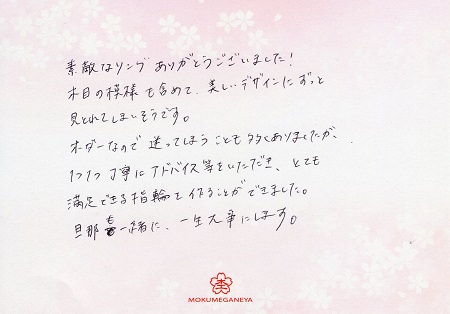 素敵なリング ありがとうございました!
木目の模様も含めて、美しいデザインにずっと
見とれてしまいそうです。
オーダーなので 迷ってしまうことも多くありましたが、
1つ1つ丁寧にアドバイス等をいただき、とても
満足できる指輪を作ることができました。
旦那も一緒に、一生大事にします。
MOKUMEGANEYA